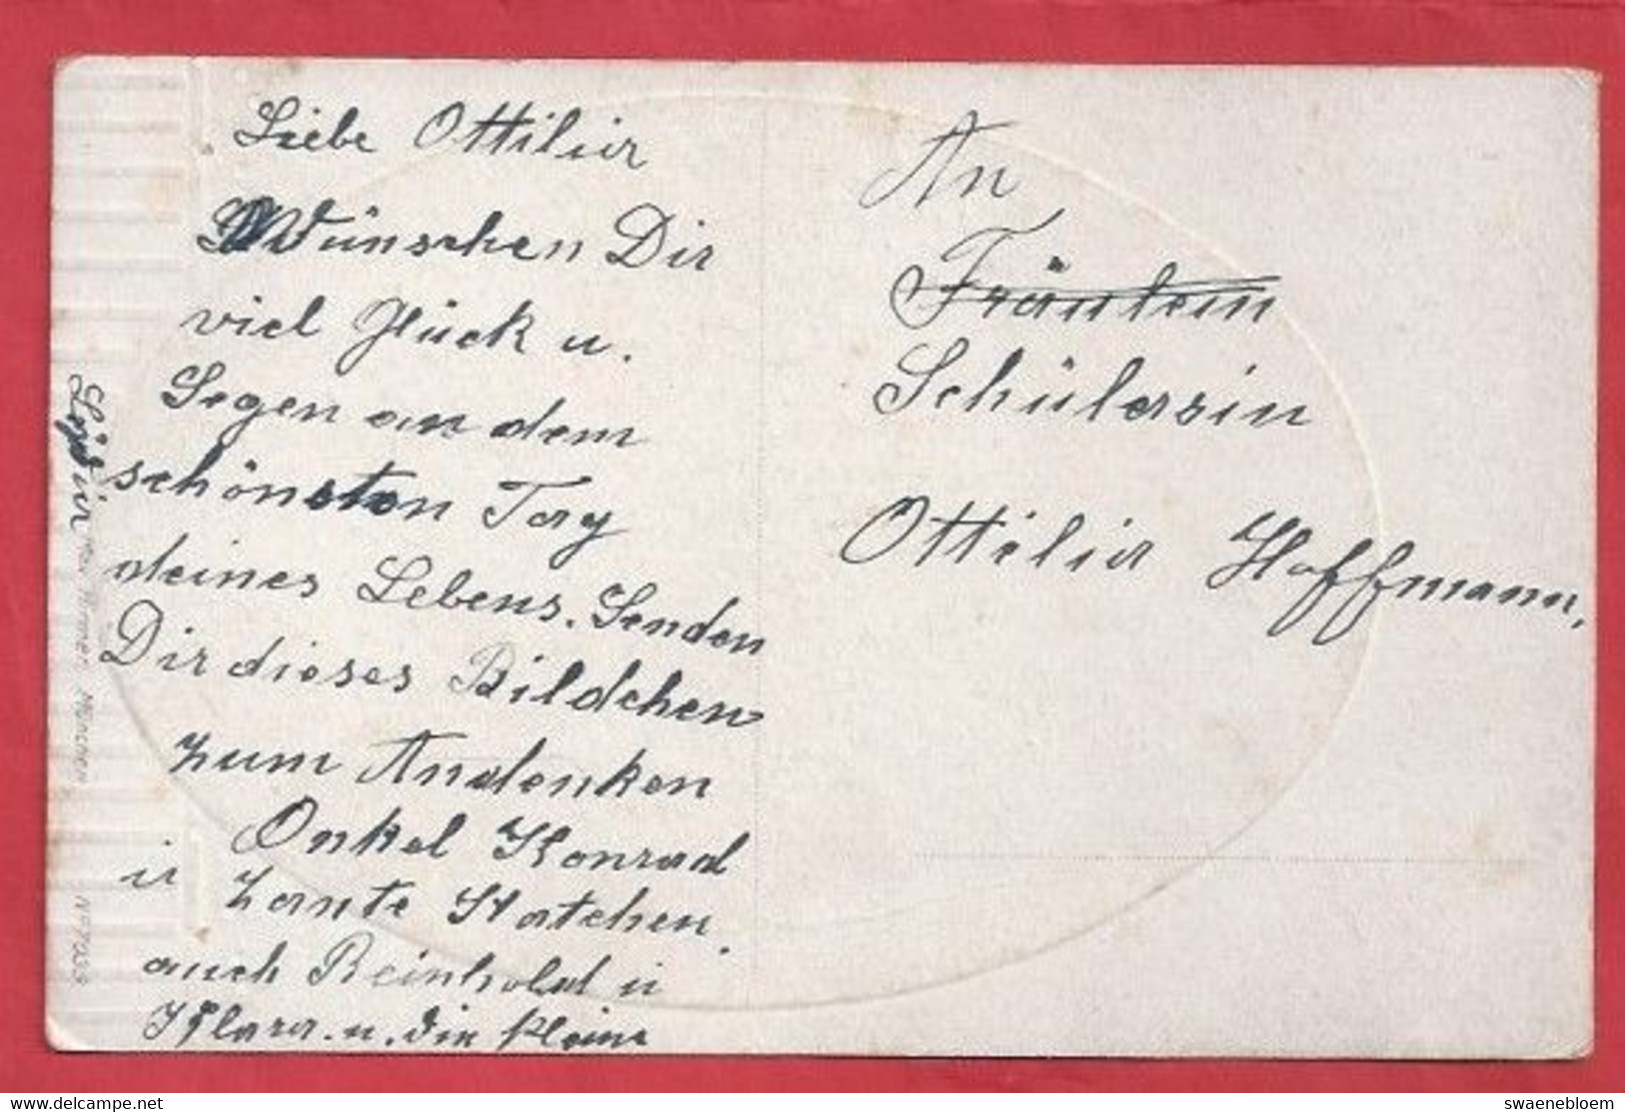 Liebe Ottilie
Wünschen Dir
viel Glück u.
Segen an dem
schönsten Tag
deines Lebens. Senden
Dir dieses Bildchen
zum Andenken
Onkel Konrad
u Tante Katchen.
auch Reinhold u
Klara. u. die kleine
An
Fräulein
Schülerin
Ottilie Hoffmann.
München
swaenebloem